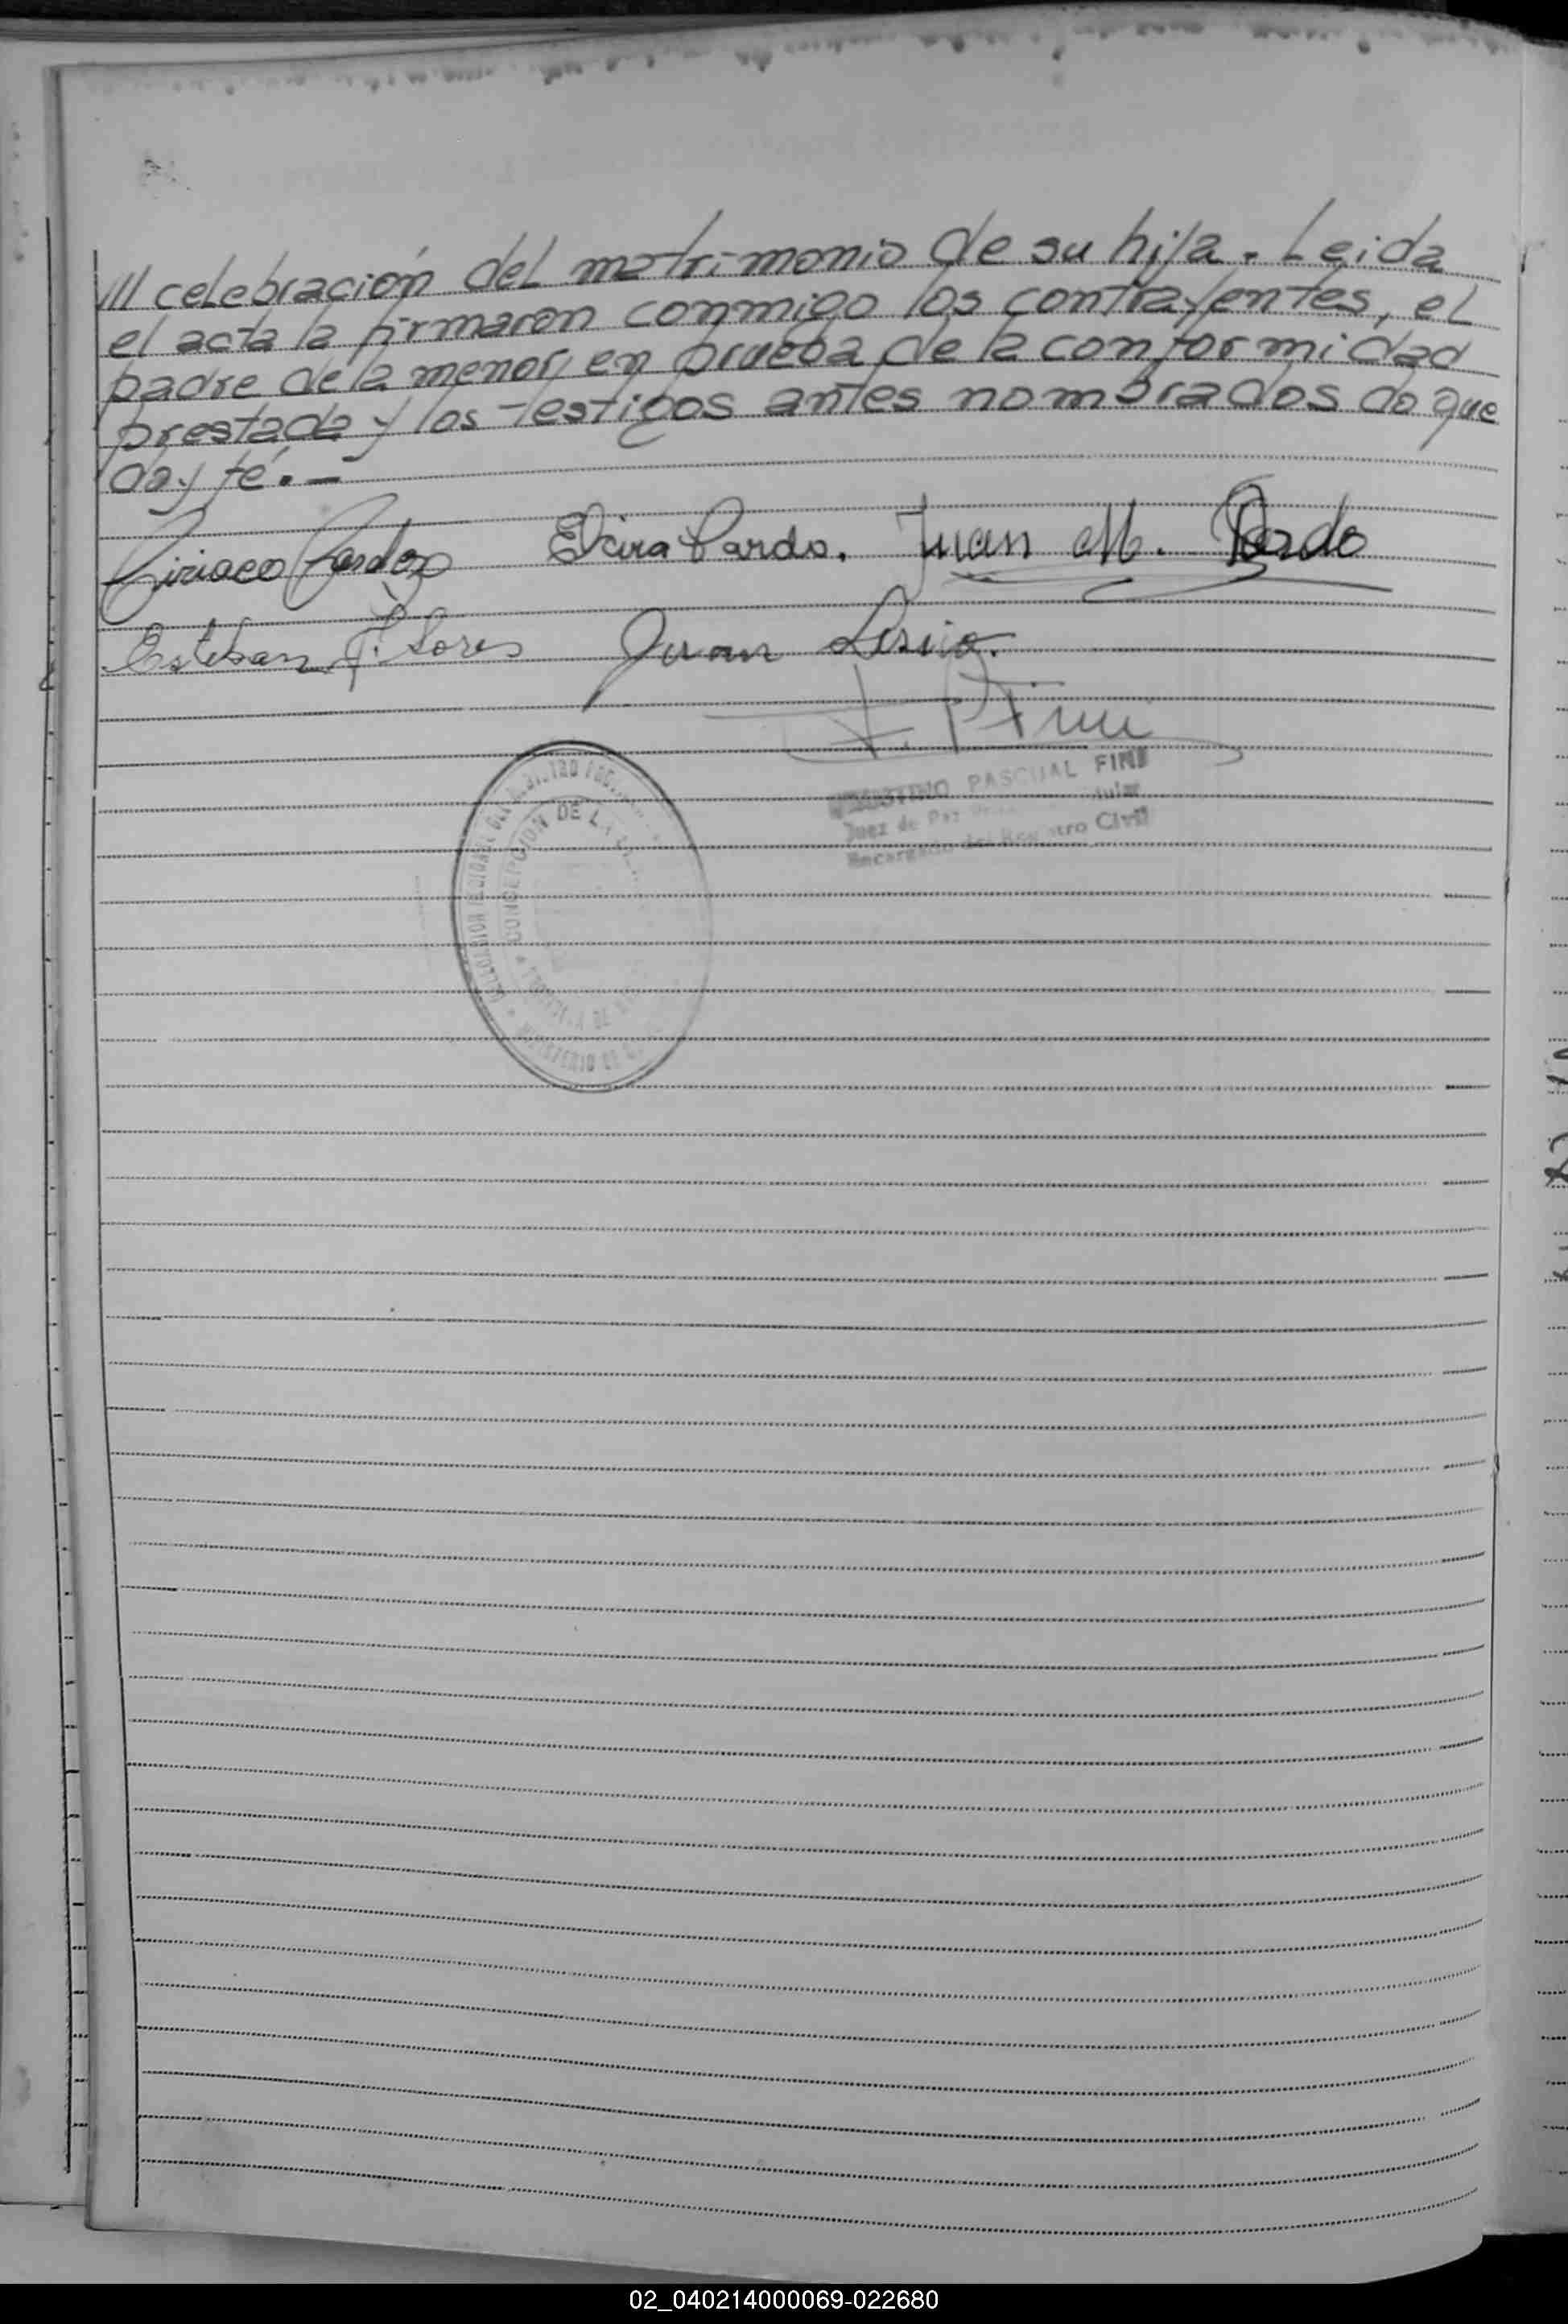 /// celebración del matrimonio de su hija. Leida
el acta la firmaron conmigo los contrayentes, el
padre de la menor, en prueba de la conformidad
prestada y los testigos antes nombrados do que
doy fé. —
Ciriaco Elvira Pardo. Juan M. Pardo
Esteban Flores Juan
PASCUAL FINI
Juez de Paz
Encargado del Registro Civil
CONCEPCION DE LA
02_040214000069-022680